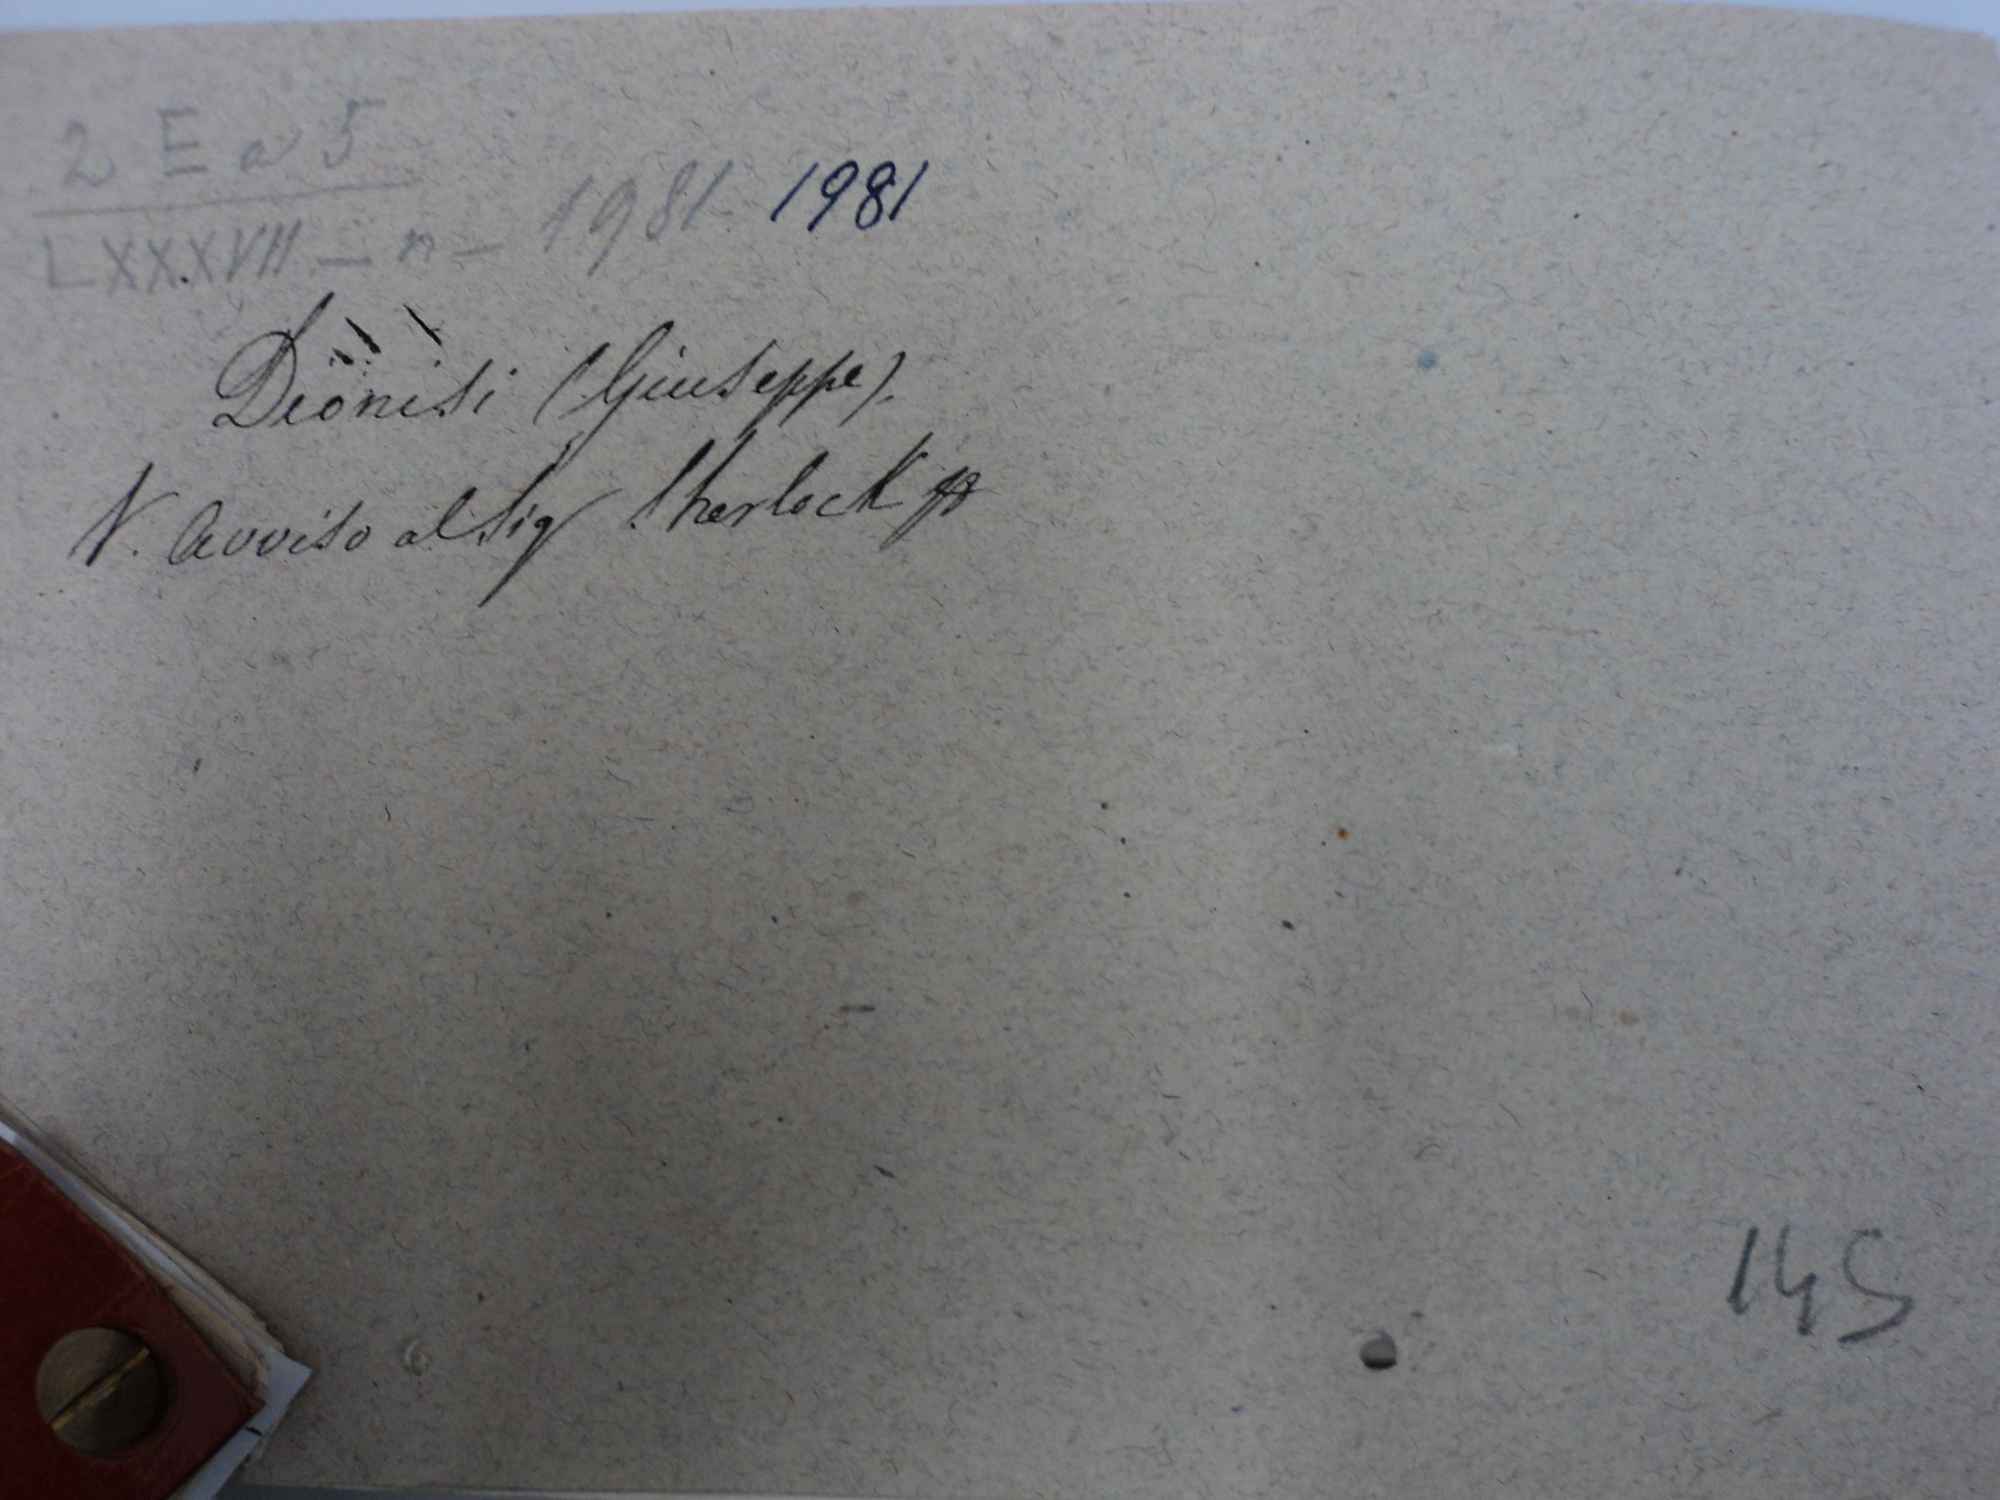 2 E a 5
LXXXVII – n – 1981 1981
Dionisi (Giuseppe).
V. Avviso al Sig Sherlock
145